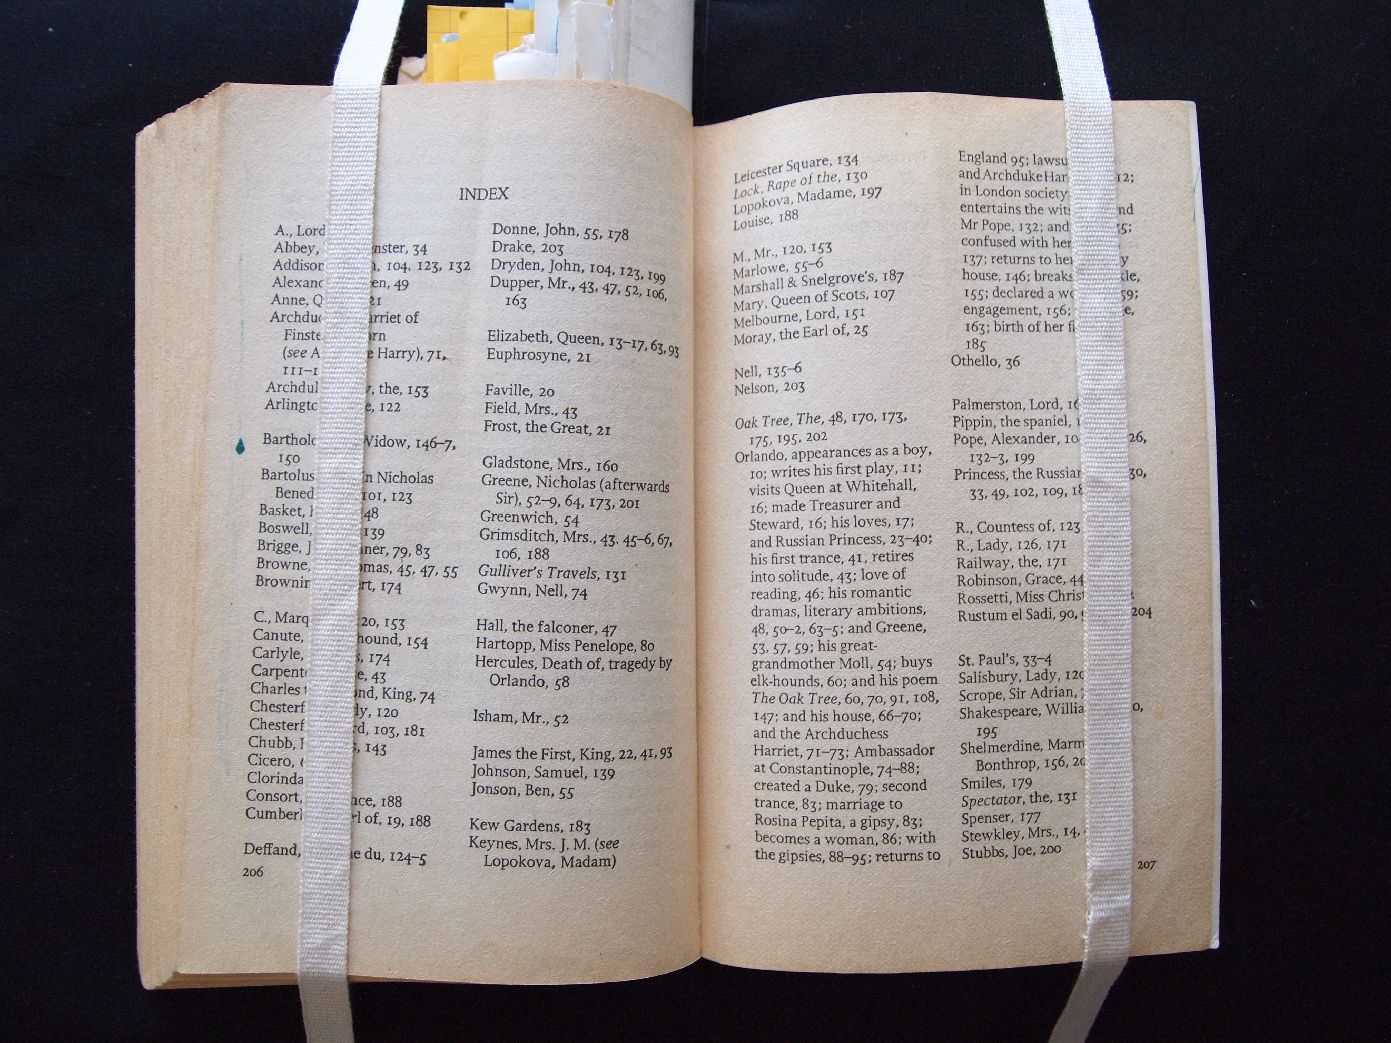 INDEX
A., Lord
Abbey, nster, 34
Addison 104, 123, 132
49
Anne, Q 21
Archdu rriet of
Finste rn
(see A e Harry), 71,
111–1
Archdu the, 153
Arlingt 122
Barthol Widow, 146–7,
150
Bartolus n Nicholas
Bened 101, 123
Basket, 48
Boswell, 139
Brigge, J ner, 79, 83
Browne, omas, 45, 47, 55
Brownin rt, 174
C., Marq 20, 153
Canute, hound, 154
Carlyle, 174
Carpent 43
Charles ond, King, 74
Chesterf dy, 120
Chesterf rd, 103, 181
Chubb, 143
Cicero,
Clorinda
Consort, nce, 188
Cumberl rl of, 19, 188
Deffand, e du, 124–5
206
Donne, John, 55, 178
Drake, 203
Dryden, John, 104, 123, 199
Dupper, Mr., 43, 47, 52, 106,
163
Elizabeth, Queen, 13–17, 63, 93
Euphrosyne, 21
Faville, 20
Field, Mrs., 43
Frost, the Great, 21
Gladstone, Mrs., 160
Greene, Nicholas (afterwards
Sir), 52–9, 64, 173, 201
Greenwich, 54
Grimsditch, Mrs., 43. 45–6, 67,
106, 188
Gulliver's Travels, 131
Gwynn, Nell, 74
Hall, the falconer, 47
Hartopp, Miss Penelope, 80
Hercules, Death of, tragedy by
Orlando, 58
Isham, Mr., 52
James the First, King, 22, 41, 93
Johnson, Samuel, 139
Jonson, Ben, 55
Kew Gardens, 183
Keynes, Mrs. J. M. (see
Lopokova, Madam)
Leicester Square, 134
Lock, Rape of the, 130
Lopokova, Madame, 197
Louise, 188
M., Mr., 120, 153
Marlowe, 55–6
Marshall & Snelgrove's, 187
Mary, Queen of Scots, 107
Melbourne, Lord, 151
Moray, the Earl of, 25
Nell, 135–6
Nelson, 203
Oak Tree, The, 48, 170, 173,
175, 195, 202
Orlando, appearances as a boy,
10; writes his first play, 11;
visits Queen at Whitehall,
16; made Treasurer and
Steward, 16; his loves, 17;
and Russian Princess, 23–40;
his first trance, 41, retires
into solitude, 43; love of
reading, 46; his romantic
dramas, literary ambitions,
48, 50–2, 63–5; and Greene,
53, 57, 59; his great-
grandmother Moll, 54; buys
elk-hounds, 60; and his poem
The Oak Tree, 60, 70, 91, 108,
147; and his house, 66–70;
and the Archduchess
Harriet, 71–73; Ambassador
at Constantinople, 74–88;
created a Duke, 79; second
trance, 83; marriage to
Rosina Pepita, a gipsy, 83;
becomes a woman, 86; with
the gipsies, 88–95; returns to
England 95; lawsu
and Archduke Har 12;
in London society
entertains the wit nd
Mr Pope, 132; and 35;
confused with her
137; returns to he y
house, 146; breaks kle,
155; declared a wo 59;
engagement, 156; e,
163; birth of her fi
185
Othello, 36
Palmerston, Lord, 16
Pippin, the spaniel, 1
Pope, Alexander, 10 26,
132–3, 199
Princess, the Russian 30,
33, 49, 102, 109, 18
R., Countess of, 123
R., Lady, 126, 171
Railway, the, 171
Robinson, Grace, 44
Rossetti, Miss Christ
Rustum el Sadi, 90, 204
St. Paul's, 33–4
Salisbury, Lady, 120
Scrope, Sir Adrian,
Shakespeare, Willia 0,
195
Shelmerdine, Marm
Bonthrop, 156, 20
Smiles, 179
Spectator, the, 131
Spenser, 177
Stewkley, Mrs., 14,
Stubbs, Joe, 200
207